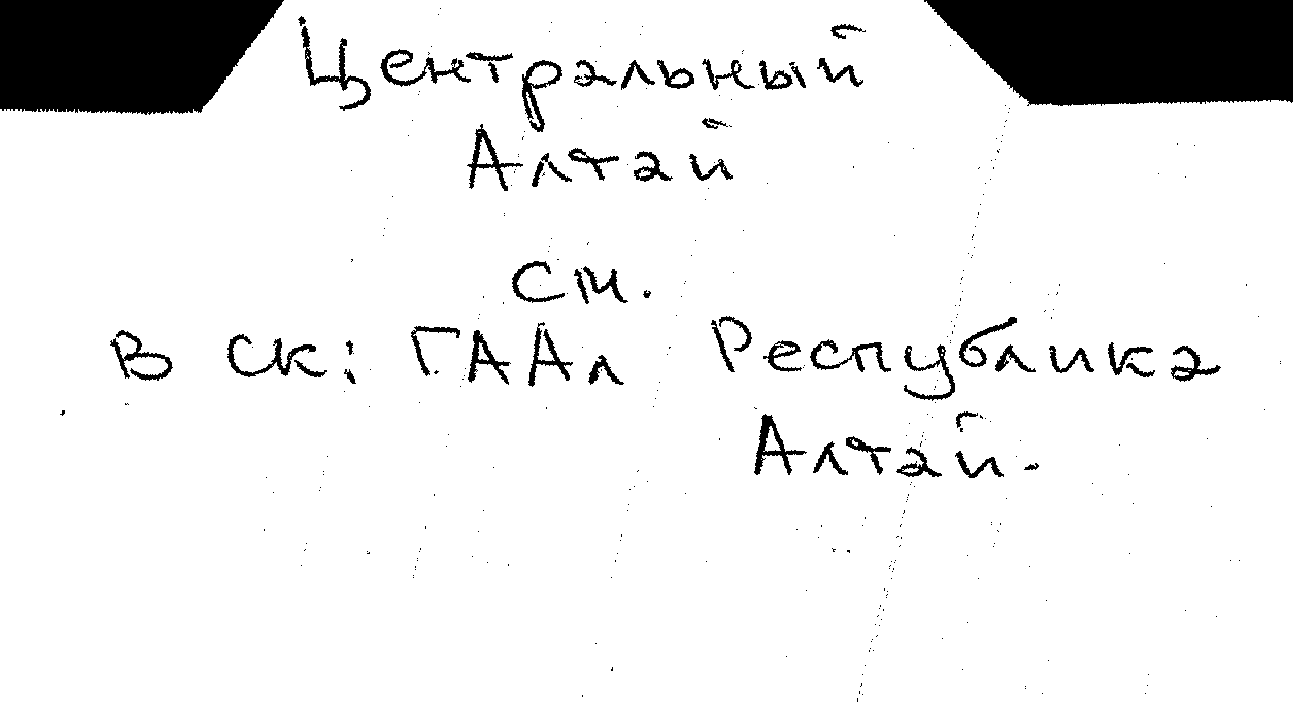 Центральный
Алтай
см.
В СК: ГААл Республика
Алтай.